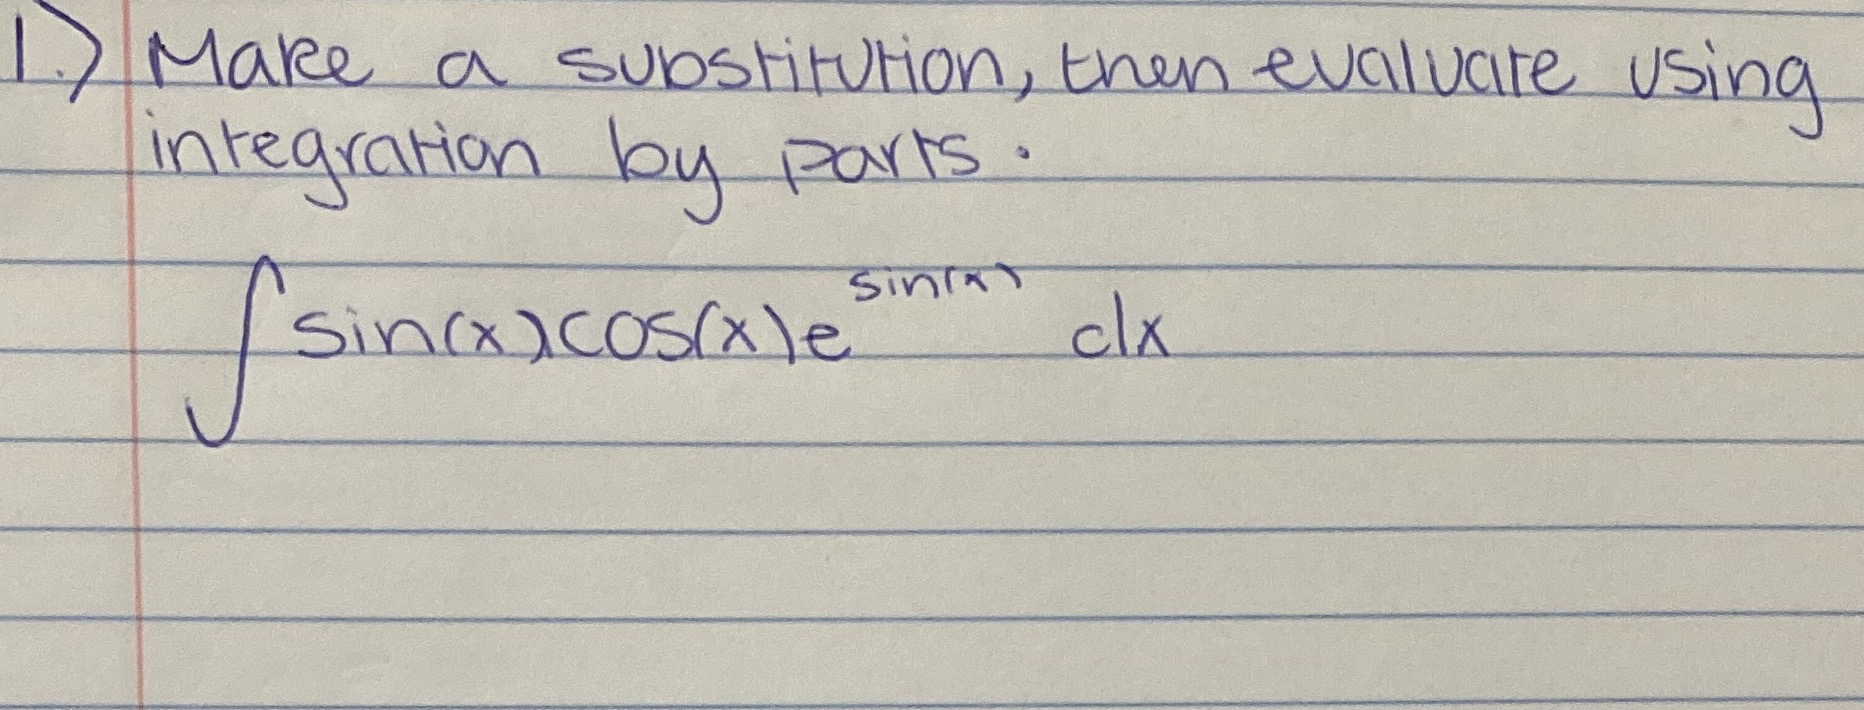 1.) Make a substitution, then evaluate using
integration by parts.
∫sin(x)cos(x)e^sin(x) dx